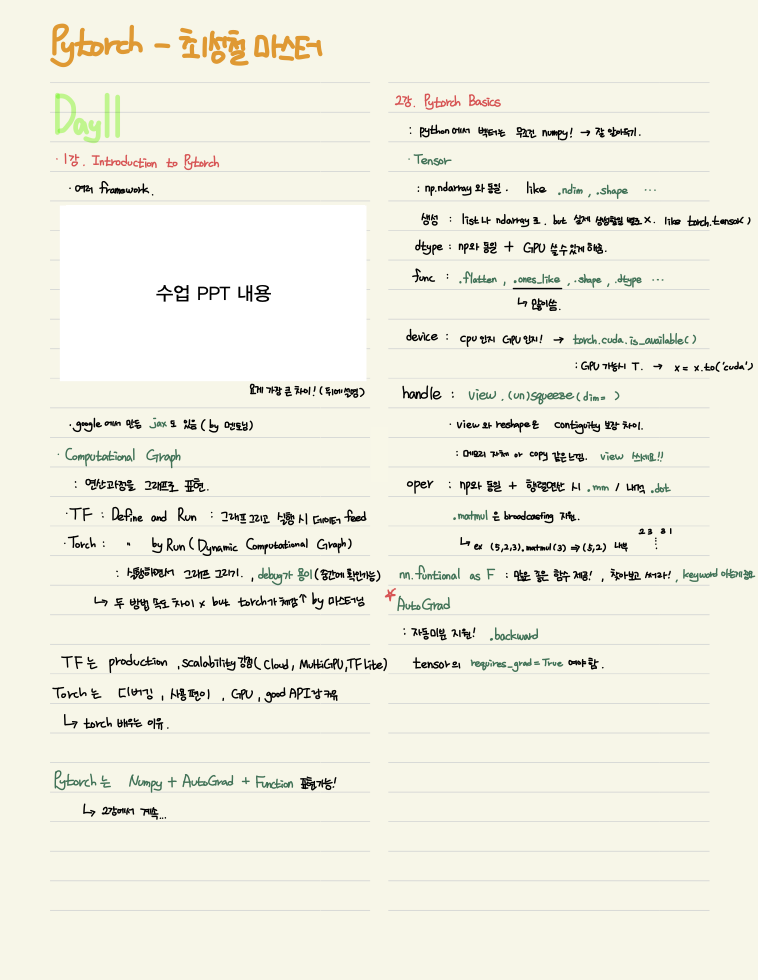 Pytorch - 최성철 마스터
Day11
· 1강. Introduction to Pytorch
· 여러 framework.
수업 PPT 내용
요게 가장 큰 차이! (뒤에 설명)
· google 에서 만든 jax 도 있음 (by 멘토님)
· Computational Graph
: 연산과정을 그래프로 표현.
· TF : Define and Run : 그래프 그리고 실행 시 데이터 feed
· Torch : " by Run (Dynamic Computational Graph)
: 실행하면서 그래프 그리기. , debug가 용이 (중간에 확인가능)
↳ 두 방법 속도 차이 x but torch가 체감↑ by 마스터님
TF 는 production , scalability 강점 (Cloud, Multi GPU, TF lite)
Torch 는 디버깅 , 사용 편이 , GPU, good API
↳ torch 배우는 이유.
Pytorch 는 Numpy + AutoGrad + Function 표현가능!
↳ 2강에서 계속...
2강. Pytorch Basics
: python 에서 벡터는 무조건 numpy! → 잘 알아두기.
· Tensor
: np.ndarray 와 동일. like .ndim , .shape ...
생성 : list 나 ndarray 로. but 실제 생성할일 별로 x. like torch.tensor( )
dtype : np와 동일 + GPU 쓸 수 있게 해줌.
func : .flatten , .ones_like , .shape , .dtype ...
↳ 많이씀.
device : cpu 인지 GPU 인지! → torch.cuda.is_available( )
: GPU 가능시 T. → x = x.to('cuda')
handle : view , (un)squeeze (dim= )
· view 와 reshape은 contiguity 보장 차이.
: 메모리 자체 copy 같은 느낌. view 쓰세요!!
oper : np와 동일 + 행렬연산 시 .mm / 내적 .dot
.matmul 은 broadcasting 지원.
2 3 3 1
↳ ex (5,2,3).matmul(3) => (5,2) 나옴 ⋮
nn.funtional as F : 많은 좋은 함수 제공! , 찾아보고 써라! , keyword 아는게 중요
* AutoGrad
: 자동미분 지원! .backward
tensor 의 requires_grad = True 여야 함.